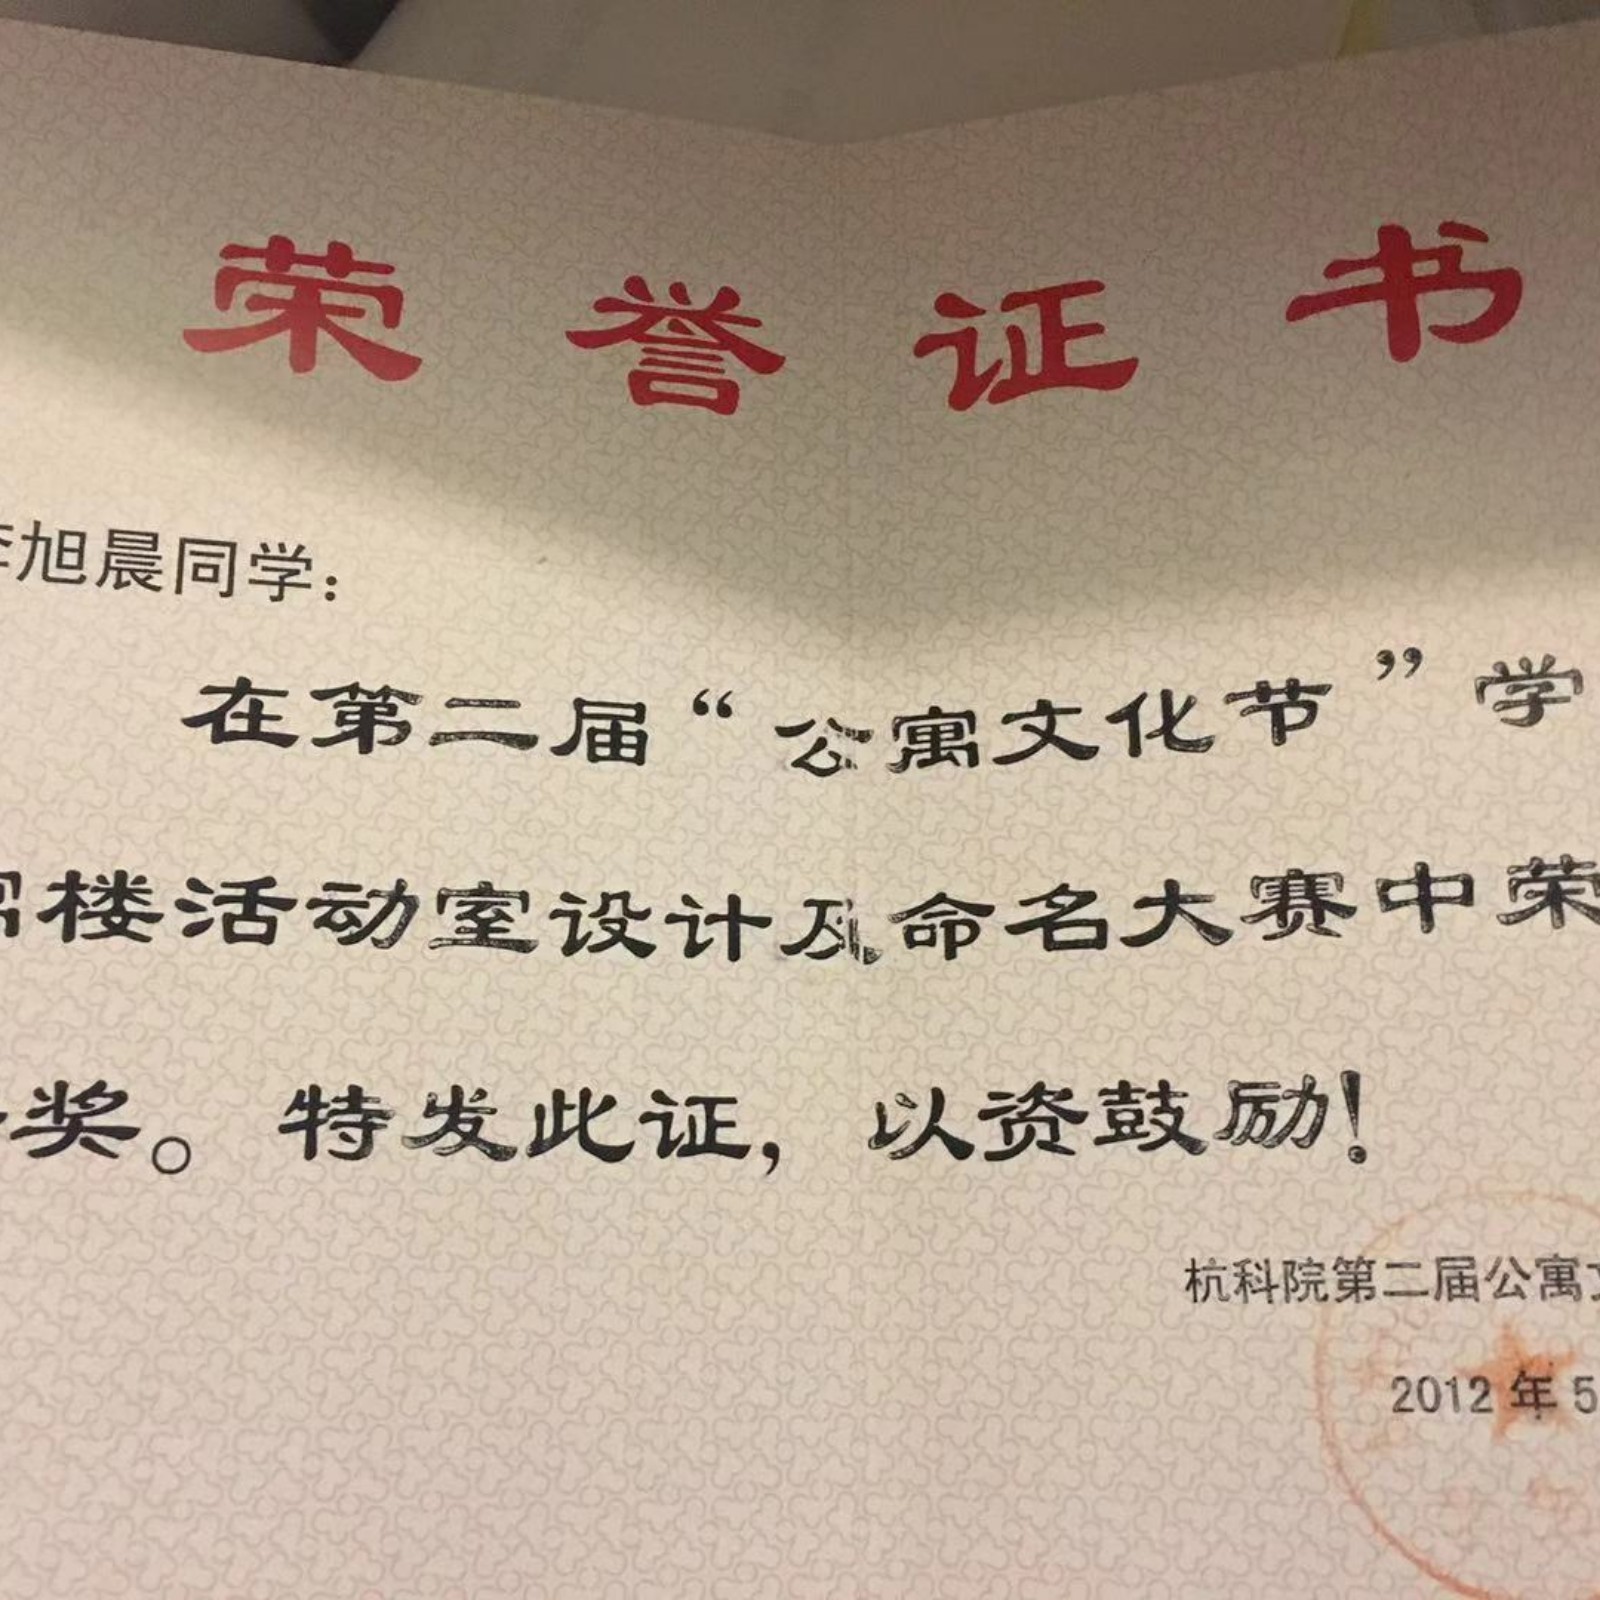 荣誉证书
旭晨同学：
在第二届“公寓文化节”学
楼活动室设计及命名大赛中荣
奖。特发此证，以资鼓励！
杭科院第二届公寓
2012年5